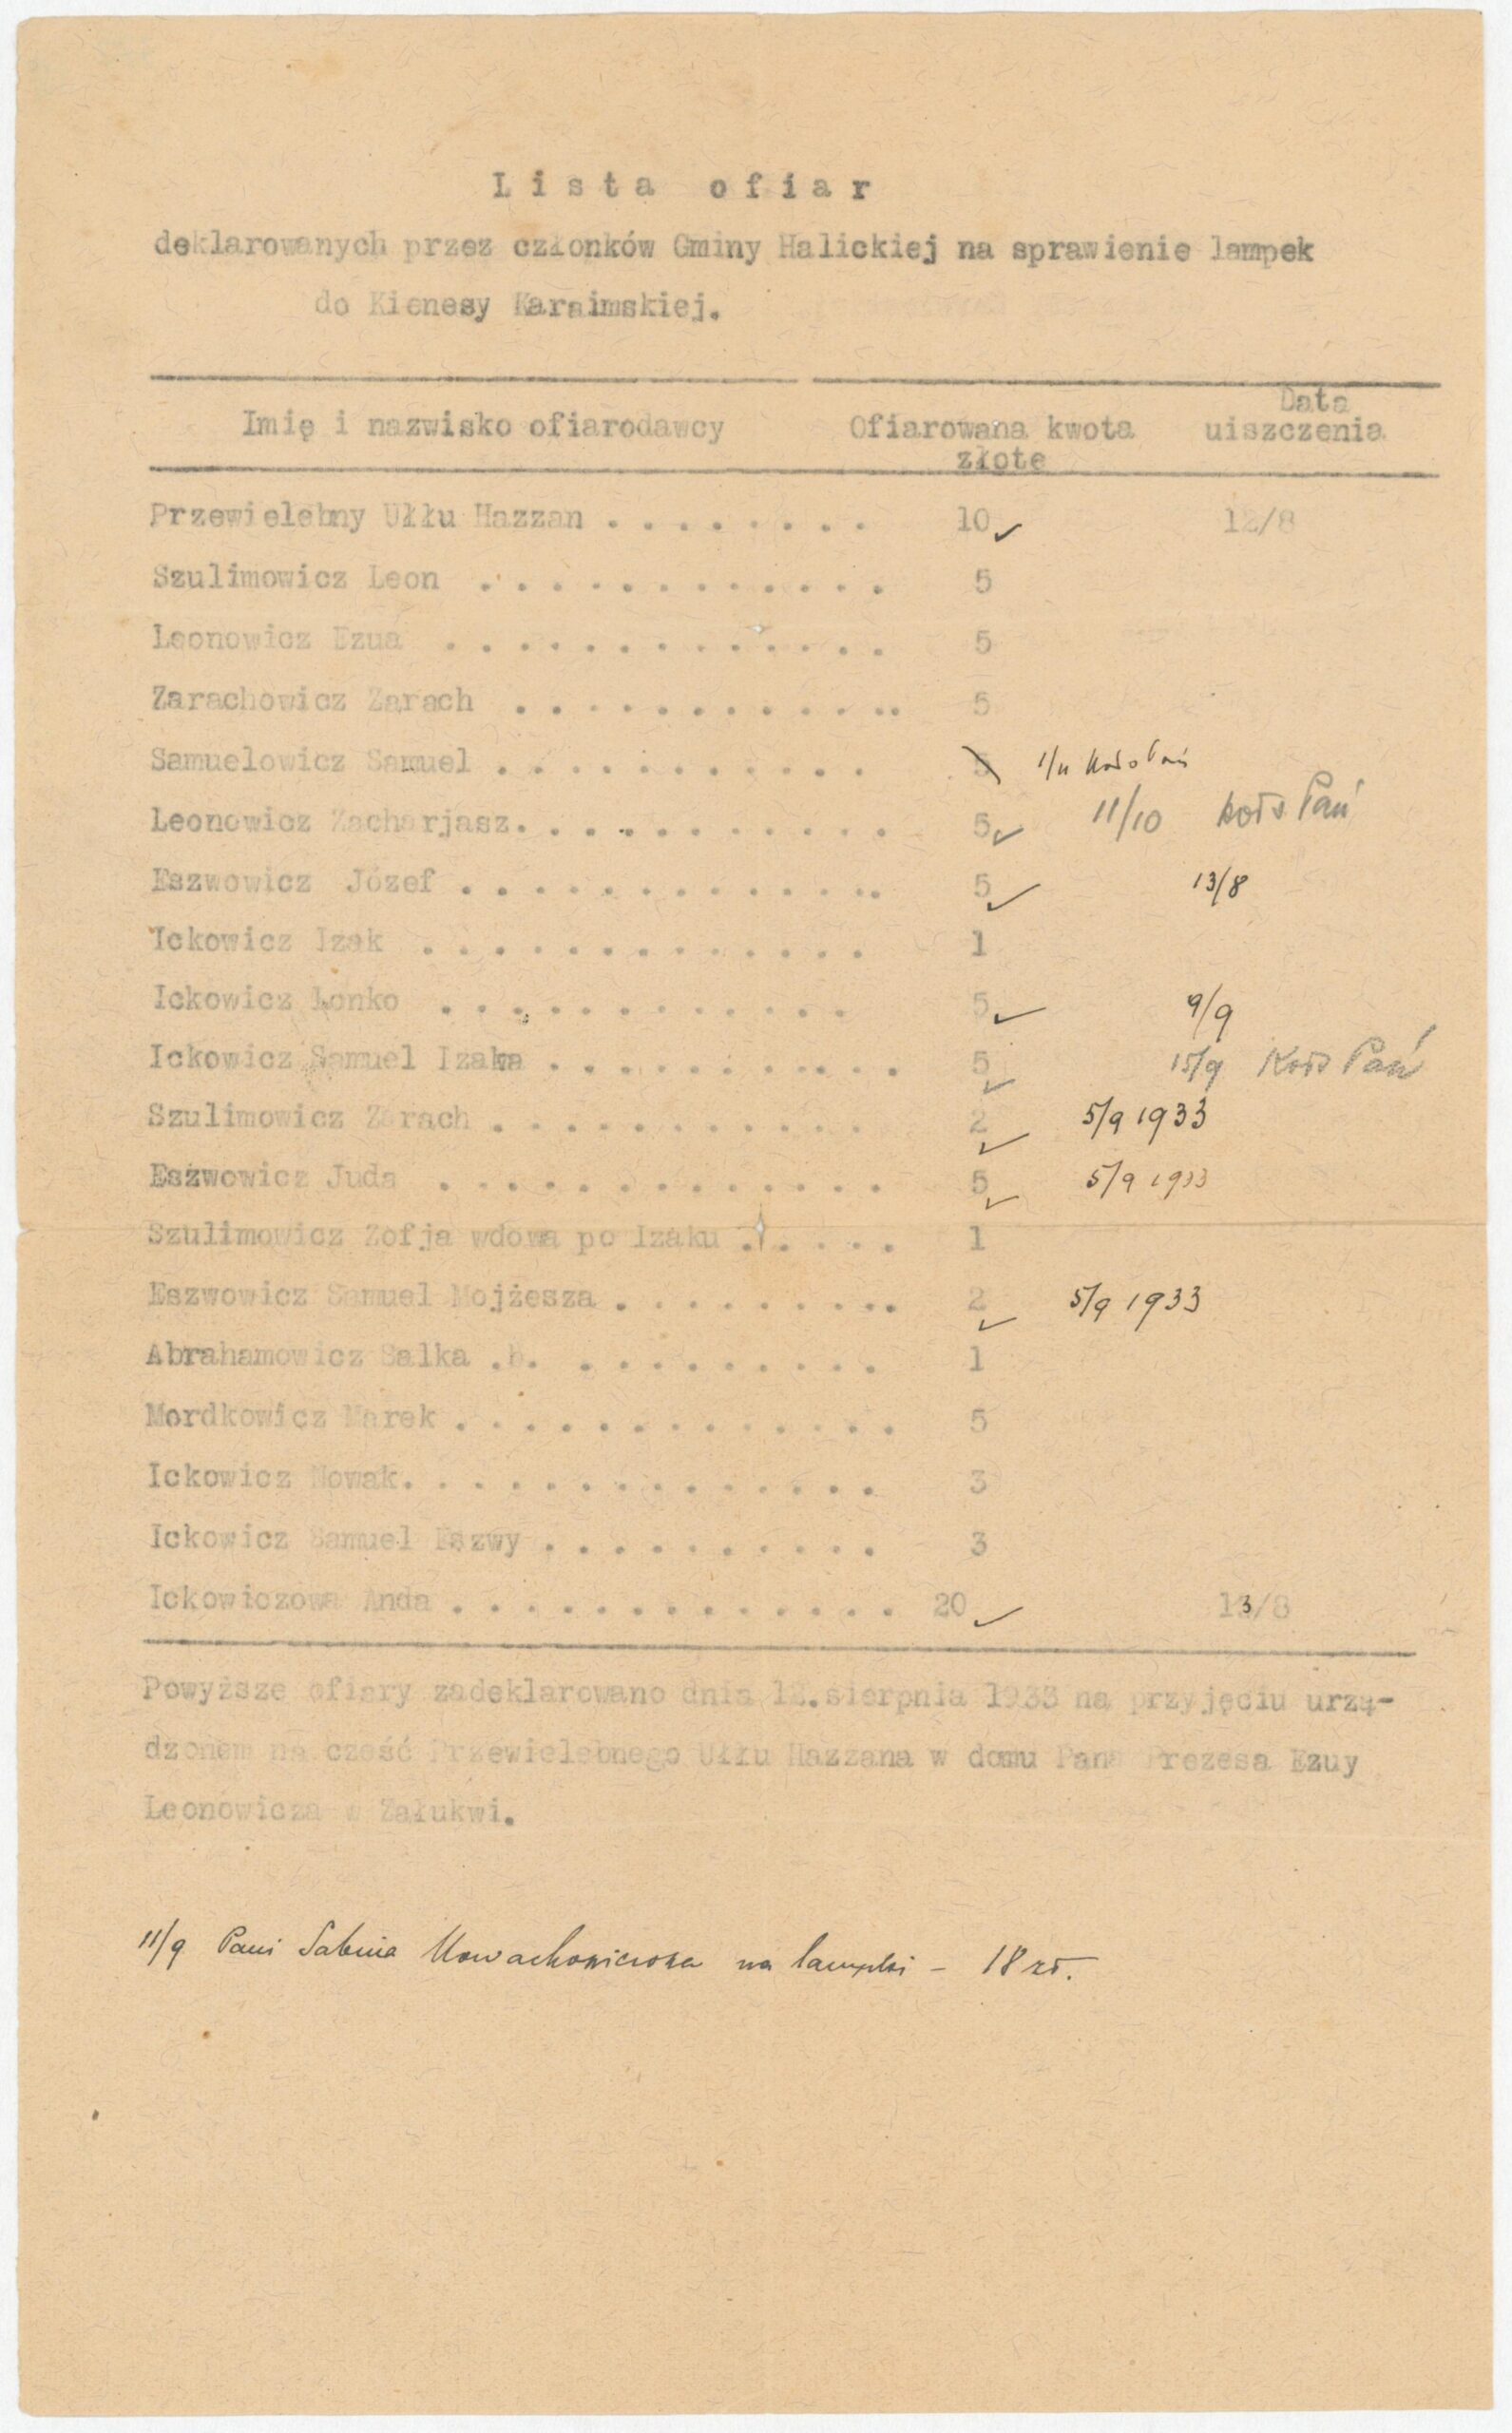 Lista ofiar
deklarowanych przez członków Gminy Halickiej na sprawienie lampek
do Kienesy Karaimskiej.
Imię i nazwisko ofiarodawcy Ofiarowana kwota złote Data uiszczenia
Przewielebny Ułłu Hazzan . . . . . . . . 10 ✓ 12/8
Szulimowicz Leon . . . . . . . . . . . . 5
Leonowicz Ezua . . . . . . . . . . . . . 5
Zarachowicz Zarach . . . . . . . . . . .. 5
Samuelowicz Samuel . . . . . . . . . . . 5 1/11 Koło Pań
Leonowicz Zacharjasz. . . . . . . . . . . 5 ✓ 11/10 Koło Pań
Eszwowicz Józef . . . . . . . . . . . .. 5 ✓ 13/8
Ickowicz Izak . . . . . . . . . . . . . 1
Ickowicz Łonko . . . . . . . . . . . . 5 ✓ 9/9
Ickowicz Samuel Izaka . . . . . . . . . . 5 ✓ 15/9 Koło Pań
Szulimowicz Zarach . . . . . . . . . . . 2 ✓ 5/9 1933
Eszwowicz Juda . . . . . . . . . . . . . 5 ✓ 5/9 1933
Szulimowicz Zofja wdowa po Izaku . . . . . 1
Eszwowicz Samuel Mojżesza . . . . . . . .. 2 ✓ 5/9 1933
Abrahamowicz Salka . . . . . . . . . . . 1
Mordkowicz Marek . . . . . . . . . . . . . 5
Ickowicz Nowak. . . . . . . . . . . . . . 3
Ickowicz Samuel Eszwy . . . . . . . . . . 3
Ickowiczowa Anda . . . . . . . . . . . . . 20 ✓ 13/8
Powyższe ofiary zadeklarowano dnia 12.sierpnia 1933 na przyjęciu urzą-
dzonem na cześć Przewielebnego Ułłu Hazzana w domu Pana Prezesa Ezuy
Leonowicza w Załukwi.
11/9 Pani Sabina Nowachowiczowa na lampki - 18 zł.